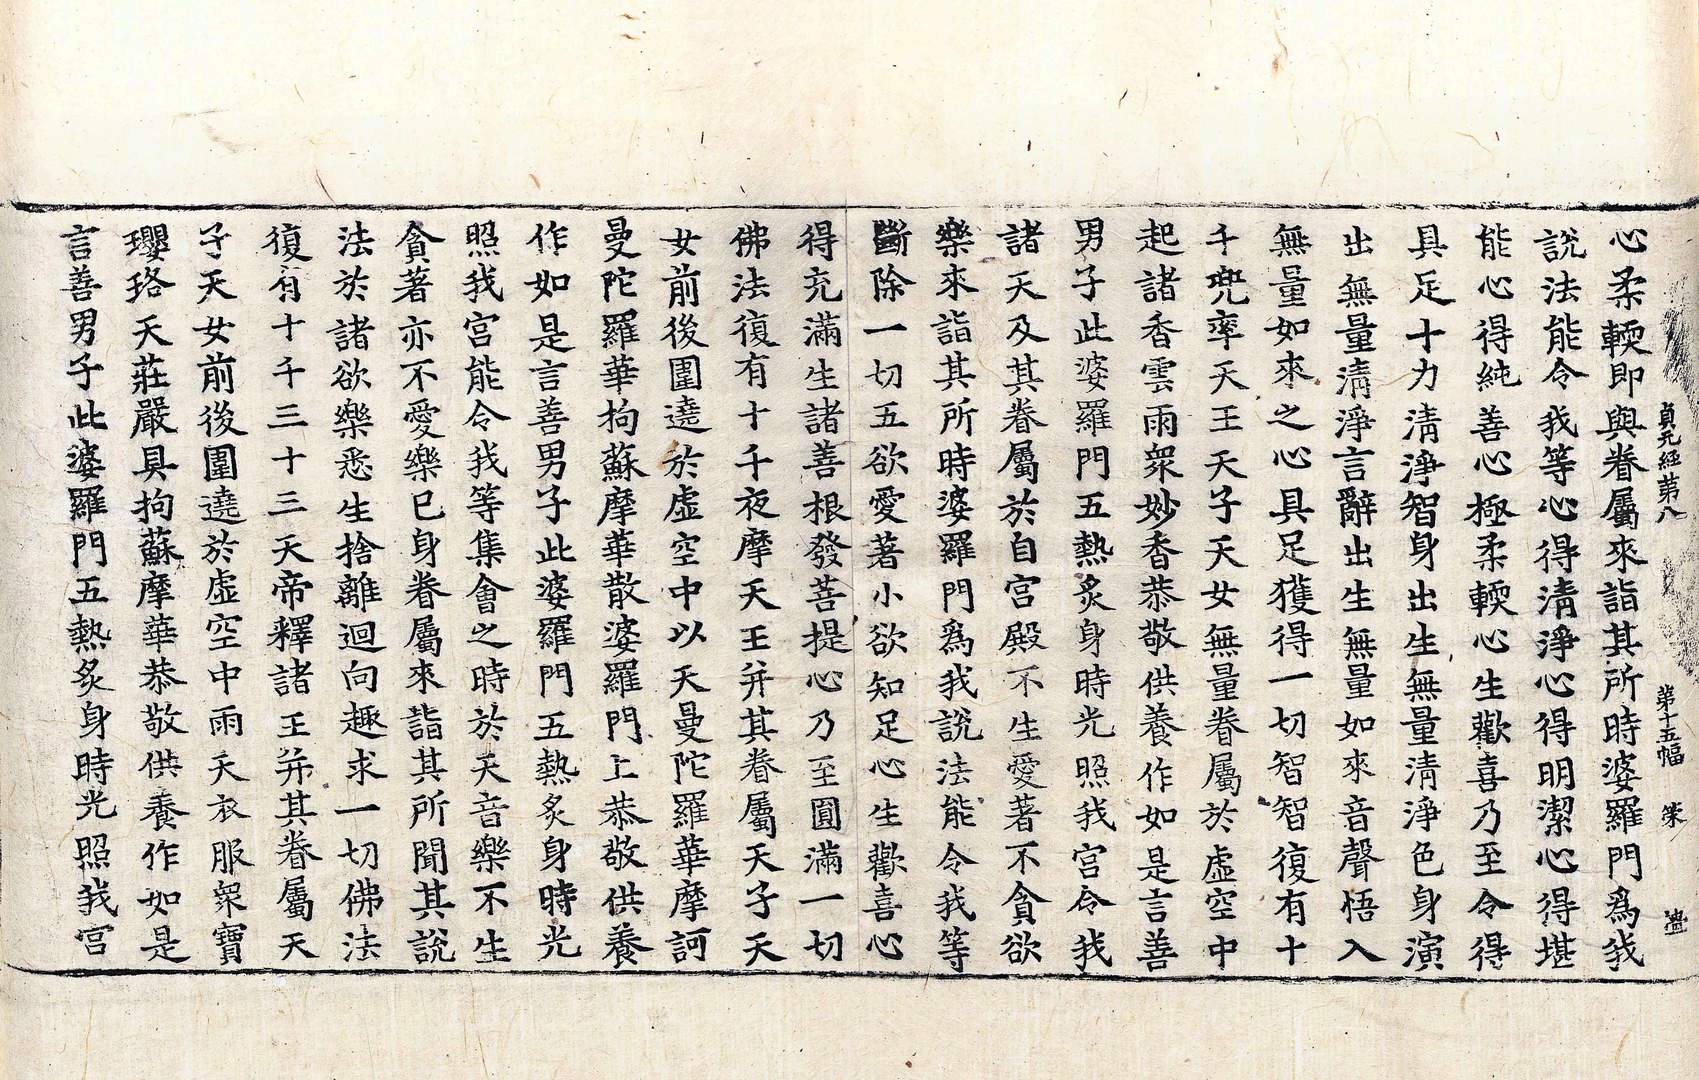 貞元經第八　第十五幅
心柔輭即與眷屬來詣其所時婆羅門爲我
說法能令我等心得清淨心得明潔心得堪
能心得純善心極柔輭心生歡喜乃至令得
具足十力清淨智身出生無量清淨色身演
出無量清淨言辭出生無量如來音聲悟入
無量如來之心具足獲得一切智智復有十
千兜率天王天子天女無量眷屬於虛空中
起諸香雲雨衆妙香恭敬供養作如是言善
男子此婆羅門五熱炙身時光照我宮令我
諸天及其眷屬於自宮殿不生愛著不貪欲
樂來詣其所時婆羅門爲我說法能令我等
斷除一切五欲愛著小欲知足心生歡喜心
得充滿生諸善根發菩提心乃至圓滿一切
佛法復有十千夜摩天王并其眷屬天子天
女前後圍遶於虛空中以天曼陀羅華摩訶
曼陀羅華拘蘇摩華散婆羅門上恭敬供養
作如是言善男子此婆羅門五熱炙身時光
照我宮能令我等集會之時於天音樂不生
貪著亦不愛樂已身眷屬來詣其所聞其說
法於諸欲樂悉生捨離迴向趣求一切佛法
復有十千三十三天帝釋諸王并其眷屬天
子天女前後圍遶於虛空中雨天衣服衆寶
瓔珞天莊嚴具拘蘇摩華恭敬供養作如是
言善男子此婆羅門五熱炙身時光照我宮